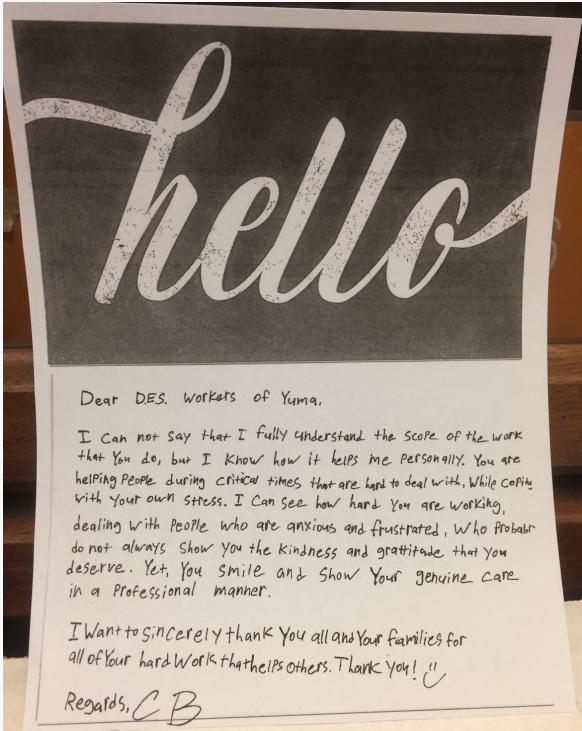 hello
Dear D.E.S. workers of Yuma,
I can not say that I fully understand the scope of the work
that You do, but I know how it helps me personally. You are
helping people during critical times that are hard to deal with, while coping
with your own stress. I can see how hard you are working,
dealing with people who are anxious and frustrated, who probabl
do not always show you the kindness and grattitude that you
deserve. Yet, you smile and show your genuine care
in a professional manner.
I want to sincerely thank you all and your families for
all of your hard work that helps others. Thank you!
Regards, C B